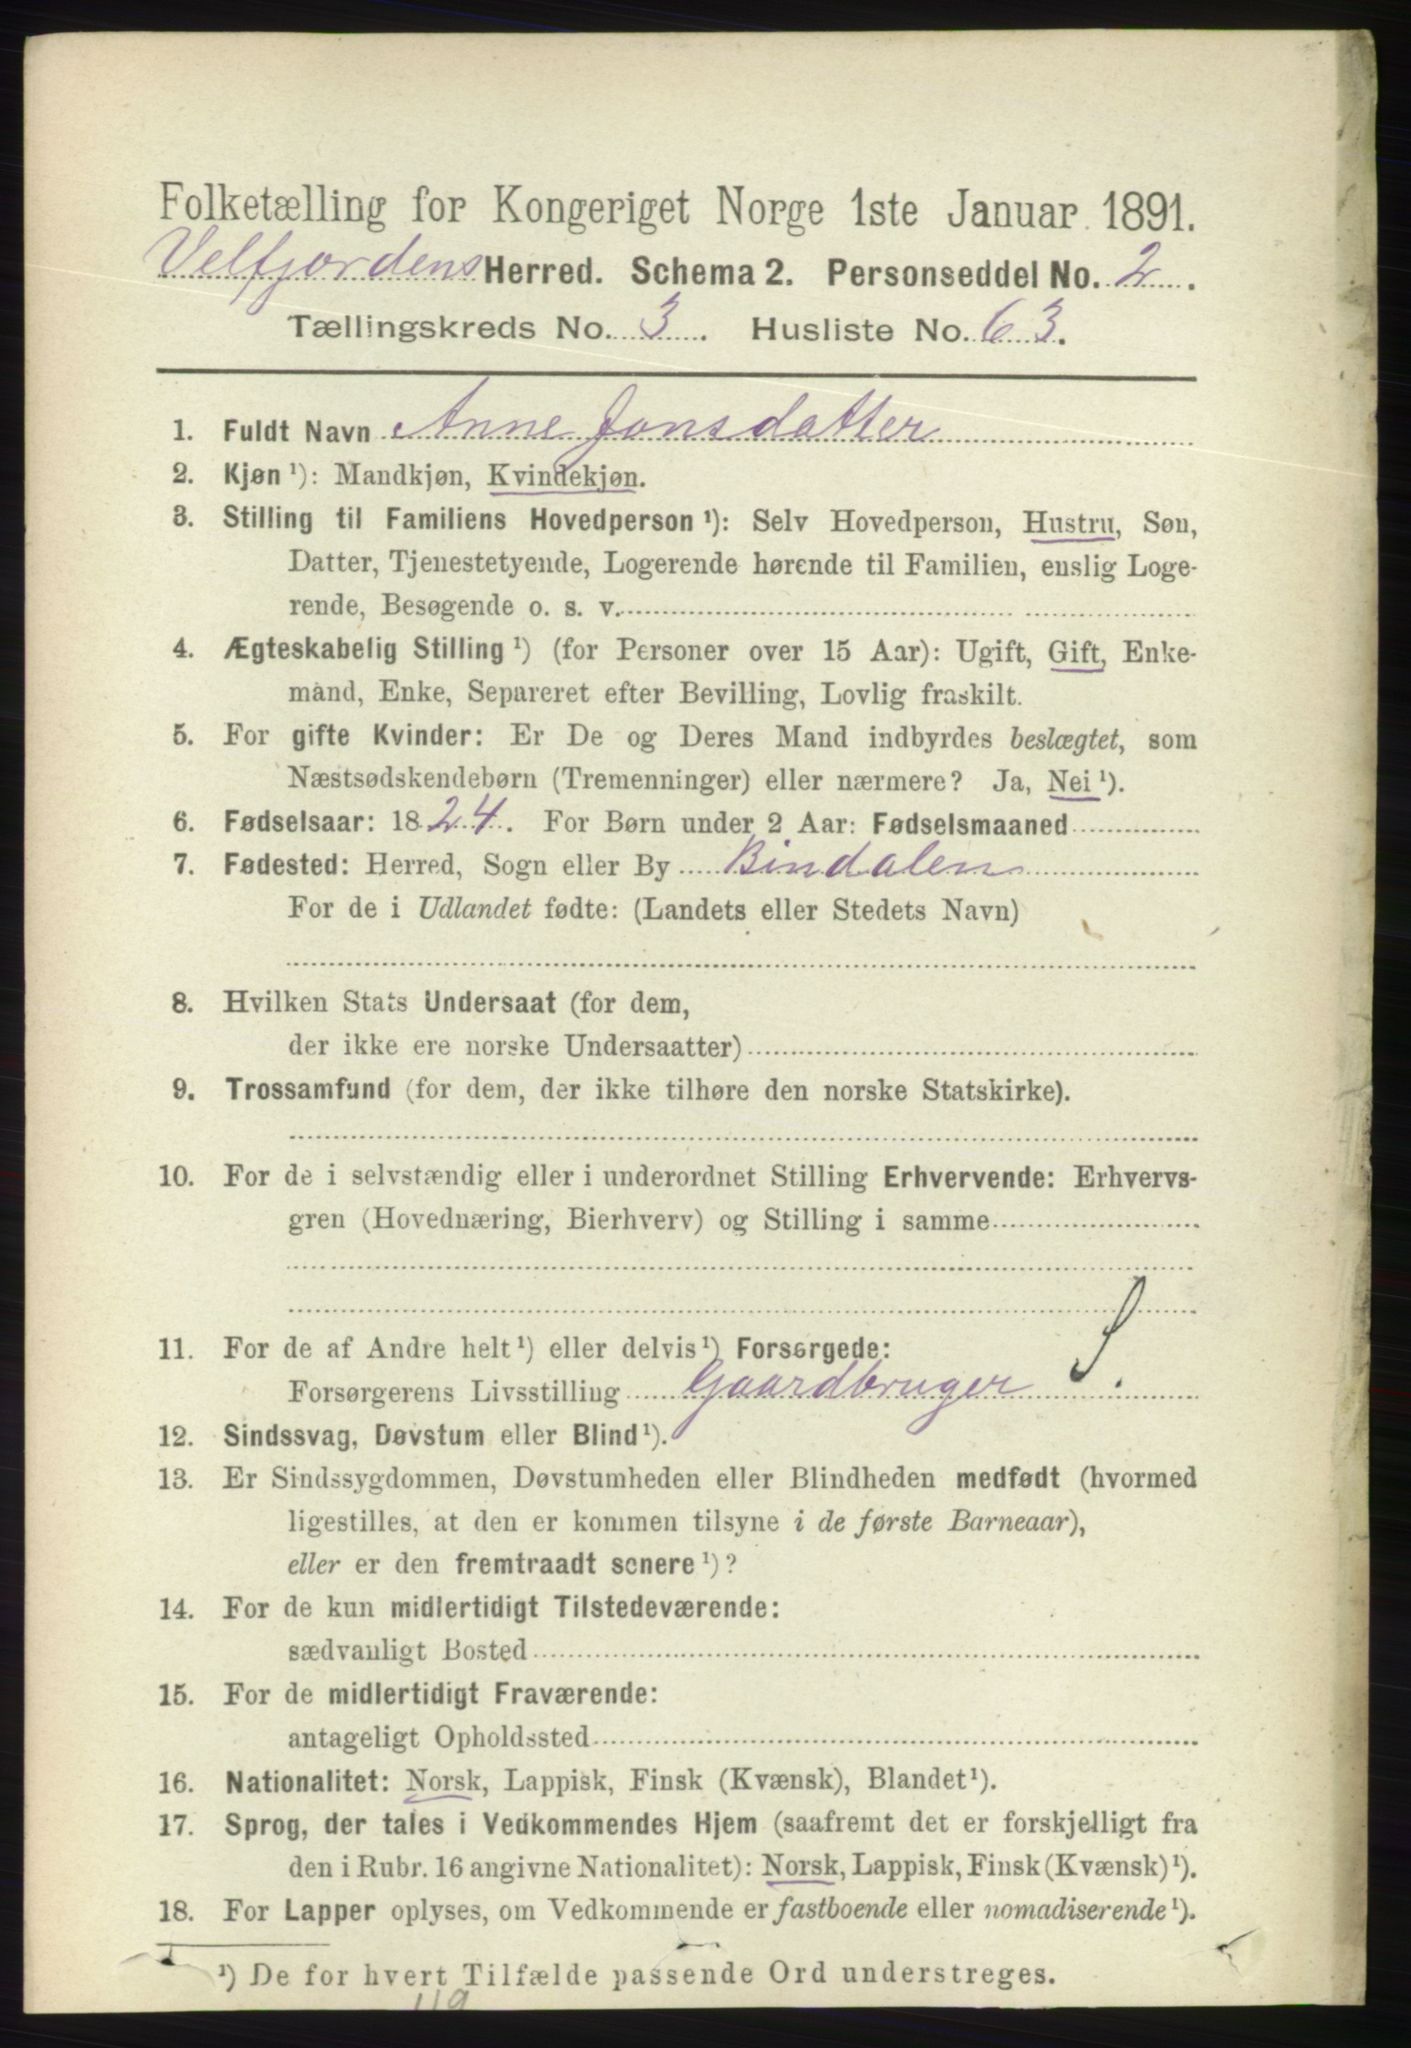 Folketælling for Kongeriget Norge 1ste Januar 1891.
Velfjordens Herred. Schema 2. Personseddel No. 2.
Tællingskreds No. 3. Husliste No. 63.
1. Fuldt Navn Anne Jonsdatter
2. Kjøn ¹): Mandkjøn, Kvindekjøn.
3. Stilling til Familiens Hovedperson ¹): Selv Hovedperson, Hustru, Søn,
Datter, Tjenestetyende, Logerende hørende til Familien, enslig Loge-
rende, Besøgende o. s. v.
4. Ægteskabelig Stilling ¹) (for Personer over 15 Aar): Ugift, Gift, Enke-
mand, Enke, Separeret efter Bevilling, Lovlig fraskilt.
5. For gifte Kvinder: Er De og Deres Mand indbyrdes beslægtet, som
Næstsødskendebørn (Tremenninger) eller nærmere? Ja, Nei ¹).
6. Fødselsaar: 1824. For Børn under 2 Aar: Fødselsmaaned
7. Fødested: Herred, Sogn eller By Bindalen
For de i Udlandet fødte: (Landets eller Stedets Navn)
8. Hvilken Stats Undersaat (for dem,
der ikke ere norske Undersaatter)
9. Trossamfund (for dem, der ikke tilhøre den norske Statskirke).
10. For de i selvstændig eller i underordnet Stilling Erhvervende: Erhvervs-
gren (Hovednæring, Bierhverv) og Stilling i samme
11. For de af Andre helt ¹) eller delvis ¹) Forsørgede:
Forsørgerens Livsstilling Gaardbruger S.
12. Sindssvag, Døvstum eller Blind ¹).
13. Er Sindssygdommen, Døvstumheden eller Blindheden medfødt (hvormed
ligestilles, at den er kommen tilsyne i de første Barneaar),
eller er den fremtraadt senere ¹)?
14. For de kun midlertidigt Tilstedeværende:
sædvanligt Bosted
15. For de midlertidigt Fraværende:
antageligt Opholdssted
16. Nationalitet: Norsk, Lappisk, Finsk (Kvænsk), Blandet ¹).
17. Sprog, der tales i Vedkommendes Hjem (saafremt det er forskjelligt fra
den i Rubr. 16 angivne Nationalitet): Norsk, Lappisk, Finsk (Kvænsk) ¹).
18. For Lapper oplyses, om Vedkommende er fastboende eller nomadiserende ¹).
¹) De for hvert Tilfælde passende Ord understreges.